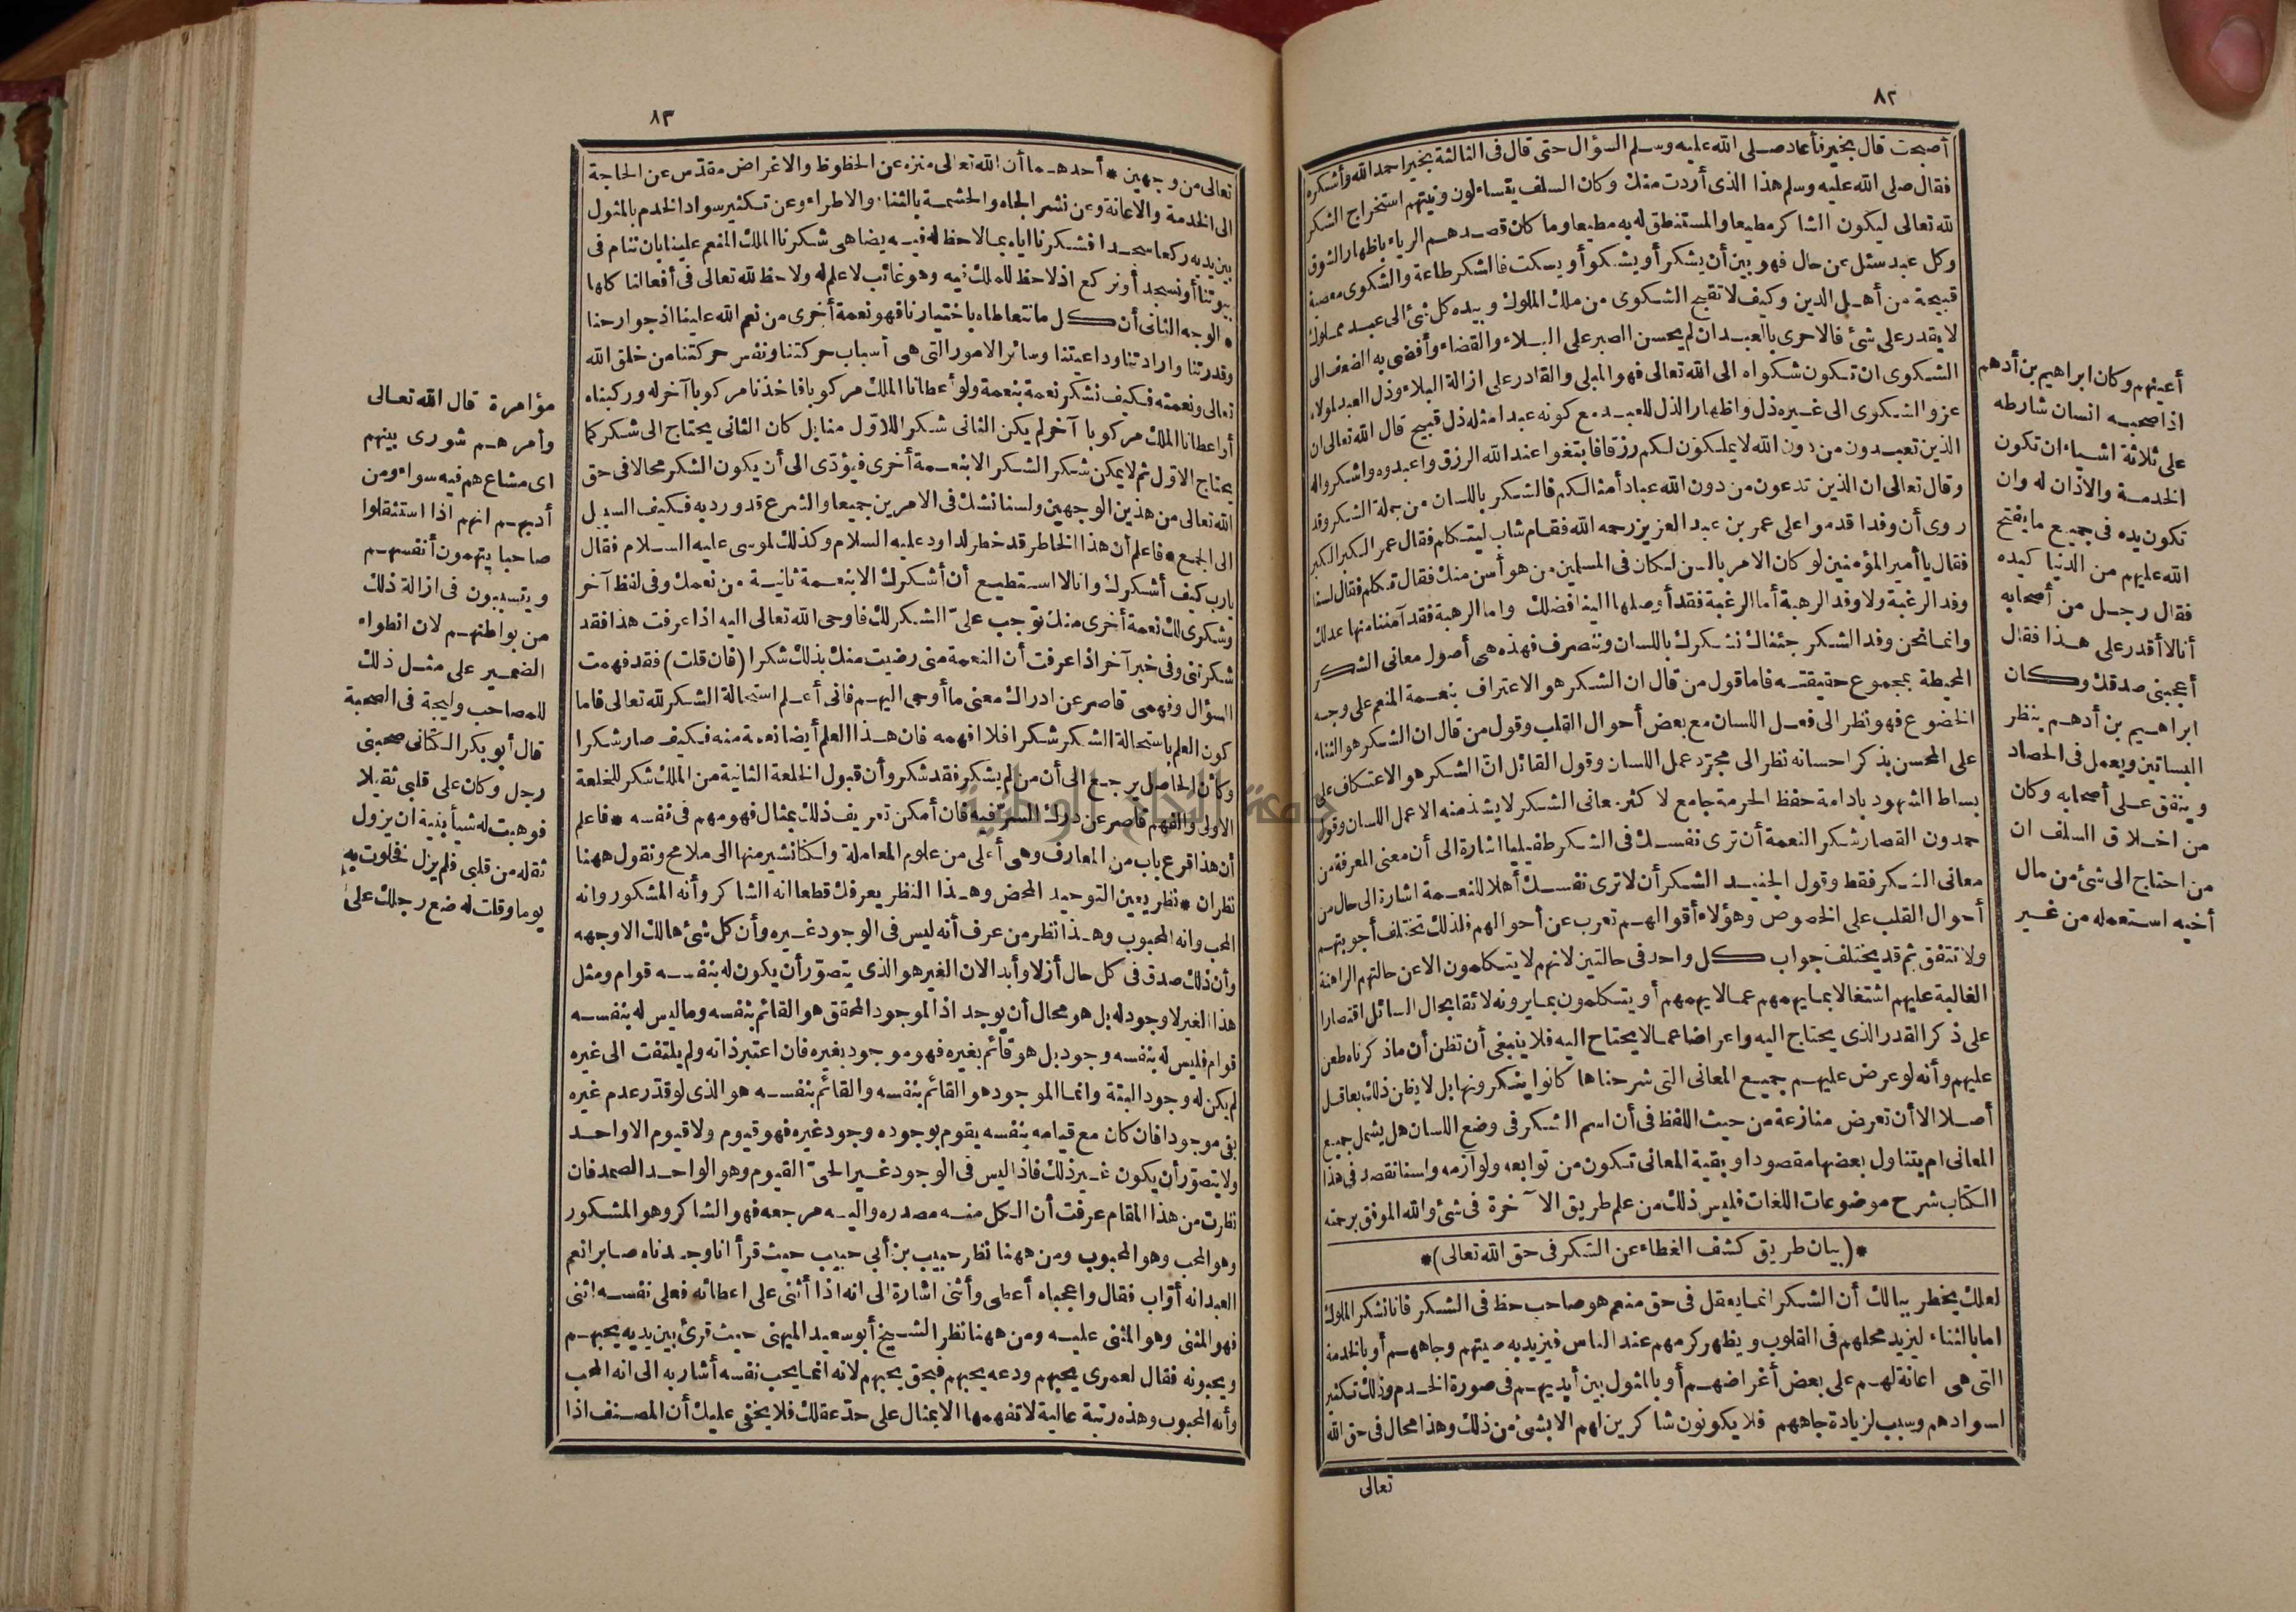 ٨٢
أصبحت قال بخير فأعاد صلى الله عليه وسلم السؤال حتى قال فى الثالثة بخير احمد الله وأشكره
فقال صلى الله عليه وسلم هذا الذى أردت منك وكان السلف يتساءلون ونيتهم استخراج الشكر
لله تعالى ليكون الشاكر مطيعا والمستنطق له به مطيعا وما كان قصدهم الرياء باظهار الشوق
وكل عبد سئل عن حال فهو بين أن يشكر أو يشكو أو يسكت فالشكر طاعة والشكوى معصية
قبيحة من أهل الدين وكيف لا تقبح الشكوى من ملك الملوك وبيده كل شئ الى عبد مملوك
لا يقدر على شئ فالاحرى بالعبد ان لم يحسن الصبر على البلاء والقضاء وأفضى به الضعف الى
الشكوى ان تكون شكواه الى الله تعالى فهو المبلى والقادر على ازالة البلاء وذل العبد لمولاه
عز والشكوى الى غيره ذل واظهار الذل للعبد مع كونه عبدا مثله ذل قبيح قال الله تعالى ان
الذين تعبدون من دون الله لا يملكون لكم رزقا فابتغوا عند الله الرزق واعبدوه واشكروا له
وقال تعالى ان الذين تدعون من دون الله عباد أمثالكم فالشكر باللسان من جملة الشكر وقد
روى أن وفدا قدموا على عمر بن عبد العزيز رحمه الله فقام شاب ليتكلم فقال عمر الكبر الكبر
فقال يا أمير المؤمنين لو كان الامر بالسن لكان فى المسلمين من هو أسن منك فقال تكلم فقال لسنا
وفد الرغبة ولا وفد الرهبة أما الرغبة فقد أوصلها الينا فضلك واما الرهبة فقد آمننا منها عدلك
وانما نحن وفد الشكر جئناك نشكرك باللسان وننصرف فهذه هى أصول معانى الشكر
المحيطة بمجموع حقيقته فاما قول من قال ان الشكر هو الاعتراف بنعمة المنعم على وجه
الخضوع فهو نظر الى فعل اللسان مع بعض أحوال القلب وقول من قال ان الشكر هو الثناء
على المحسن بذكر احسانه نظر الى مجرّد عمل اللسان وقول القائل ان الشكر هو الاعتكاف على
بساط الشهود بادامة حفظ الحرمة جامع لاكثر معانى الشكر لا يشذ منه الا عمل اللسان وقول
حمدون القصار شكر النعمة أن ترى نفسك فى الشكر طفيليا اشارة الى أن معنى المعرفة من
معانى الشكر فقط وقول الجنيد الشكر أن لا ترى نفسك أهلا للنعمة اشارة الى حال من
أحوال القلب على الخصوص وهؤلاء أقوالهم تعرب عن أحوالهم فلذلك تختلف أجوبتهم
ولا تتفق ثم قد يختلف جواب كل واحد فى حالتين لانهم لا يتكلمون الا عن حالتهم الراهنة
الغالبة عليهم اشتغالا بما يهمهم عما لا يهمهم أو يتكلمون بما يرونه لائقا بحال السائل اقتصارا
على ذكر القدر الذى يحتاج اليه واعراضا عما لا يحتاج اليه فلا ينبغى أن تظن أن ما ذكرناه طعن
عليهم وأنه لو عرض عليهم جميع المعانى التى شرحناها كانوا ينكرونها بل لا يظن ذلك بعاقل
أصلا الا أن تعرض منازعة من حيث اللفظ فى أن اسم الشكر فى وضع اللسان هل يشمل جميع
المعانى ام يتناول بعضها مقصودا وبقية المعانى تكون من توابعه ولوازمه ولسنا نقصد فى هذا
الكتاب شرح موضوعات اللغات فليس ذلك من علم طريق الآخرة فى شئ والله الموفق برحمته
*(بيان طريق كشف الغطاء عن الشكر فى حق الله تعالى)*
لعلك يخطر ببالك أن الشكر انما يعقل فى حق منعم هو صاحب حظ فى الشكر فانا نشكر الملوك
اما بالثناء ليزيد محلهم فى القلوب ويظهر كرمهم عند الناس فيزيد به صيتهم وجاههم أو بالخدمة
التى هى اعانة لهم على بعض أغراضهم أو بالمثول بين أيديهم فى صورة الخدم وذلك تكثير
لسوادهم وسبب لزيادة جاههم فلا يكونون شاكرين لهم الا بشئ من ذلك وهذا محال فى حق الله
تعالى
أعينهم وكان ابراهيم بن أدهم
اذا صحبه انسان شارطه
على ثلاثة اشياء ان تكون
الخدمة والاذان له وان
تكون يده فى جميع ما يفتح
الله عليهم من الدنيا كيده
فقال رجل من أصحابه
أنا لا أقدر على هذا فقال
أعجبنى صدقك وكان
ابراهيم بن أدهم ينظر
البساتين ويعمل فى الحصاد
وينفق على أصحابه وكان
من اخلاق السلف ان
من احتاج الى شئ من مال
أخيه استعمله من غير
٨٣
تعالى من وجهين * أحدهما أن الله تعالى منزه عن الحظوظ والاغراض مقدّس عن الحاجة
الى الخدمة والاعانة وعن نشر الجاه والحشمة بالثناء والاطراء وعن تكثير سواد الخدم بالمثول
بين يديه ركعا سجدا فشكرنا اياه بما لا حظ له فيه يضاهى شكرنا الملك المنعم علينا بان ننام فى
بيوتنا أو نسجد أو نركع اذ لا حظ للملك فيه وهو غائب لا علم له ولا حظ لله تعالى فى أفعالنا كلها
* الوجه الثانى أن كل ما نتعاطاه باختيارنا فهو نعمة أخرى من نعم الله علينا اذ جوارحنا
وقدرتنا وارادتنا وداعيتنا وسائر الامور التى هى أسباب حركتنا ونفس حركتنا من خلق الله
تعالى ونعمته فكيف نشكر نعمة بنعمة ولو أعطانا الملك مركوبا فاخذنا مركوبا آخر له وركبناه
أو أعطانا الملك مركوبا آخر لم يكن الثانى شكرا للاوّل منا بل كان الثانى يحتاج الى شكر كما
يحتاج الاوّل ثم لا يمكن شكر الشكر الا بنعمة أخرى فيؤدّى الى أن يكون الشكر محالا فى حق
الله تعالى من هذين الوجهين ولسنا نشك فى الامرين جميعا والشرع قد ورد به فكيف السبيل
الى الجمع * فاعلم أن هذا الخاطر قد خطر لداود عليه السلام وكذلك لموسى عليه السلام فقال
يارب كيف أشكرك وانا لا استطيع أن أشكرك الا بنعمة ثانية من نعمك وفى لفظ آخر
وشكرى لك نعمة أخرى منك توجب علىّ الشكر لك فاوحى الله تعالى اليه اذا عرفت هذا فقد
شكرتنى وفى خبر آخر اذا عرفت أن النعمة منى رضيت منك بذلك شكرا (فان قلت) فقد فهمت
السؤال وفهمى قاصر عن ادراك معنى ما أوحى اليهم فانى أعلم استحالة الشكر لله تعالى فاما
كون العلم باستحالة الشكر شكرا فلا افهمه فان هذا العلم أيضا نعمة منه فكيف صار شكرا
وكأن الحاصل يرجع الى أن من لم يشكر فقد شكر وأن قبول الخلعة الثانية من الملك شكر للخلعة
الاولى والفهم قاصر عن درك السرّ فيه فان أمكن تعريف ذلك بمثال فهو مهم فى نفسه * فاعلم
أن هذا قرع باب من المعارف وهى أعلى من علوم المعاملة ولكنا نشير منها الى ملامح ونقول ههنا
نظران * نظر بعين التوحيد المحض وهذا النظر يعرفك قطعا انه الشاكر وأنه المشكور وانه
المحب وانه المحبوب وهذا نظر من عرف أنه ليس فى الوجود غيره وأن كل شئ هالك الا وجهه
وأن ذلك صدق فى كل حال أزلا وأبدا لان الغير هو الذى يتصوّر أن يكون له بنفسه قوام ومثل
هذا الغير لا وجود له بل هو محال أن يوجد اذ الموجود المحقق هو القائم بنفسه وما ليس له بنفسه
قوام فليس له بنفسه وجود بل هو قائم بغيره فهو موجود بغيره فان اعتبر ذاته ولم يلتفت الى غيره
لم يكن له وجود البتة وانما الموجود هو القائم بنفسه والقائم بنفسه هو الذى لو قدّر عدم غيره
بقى موجودا فان كان مع قيامه بنفسه يقوم بوجوده وجود غيره فهو قيوم ولا قيوم الا واحد
ولا يتصوّر أن يكون غير ذلك فاذا ليس فى الوجود غير الحىّ القيوم وهو الواحد الصمد فان
نظرت من هذا المقام عرفت أن الكل منه مصدره واليه مرجعه فهو الشاكر وهو المشكور
وهو المحب وهو المحبوب ومن ههنا نظر حبيب بن أبى حبيب حيث قرأ انا وجدناه صابرا نعم
العبد انه أوّاب فقال واعجباه أعطى وأثنى اشارة الى انه اذا أثنى على اعطائه فعلى نفسه اثنى
فهو المثنى وهو المثنى عليه ومن ههنا نظر الشيخ أبو سعيد الميهنى حيث قرئ بين يديه يحبهم
ويحبونه فقال لعمرى يحبهم ودعه يحبهم فبحق يحبهم لانه انما يحب نفسه أشار به الى انه المحب
وأنه المحبوب وهذه رتبة عالية لا تفهمها الا بمثال على حدّ عقلك فلا يخفى عليك أن المصنف اذا
مؤامرة قال الله تعالى
وأمرهم شورى بينهم
اى مشاع هم فيه سواء ومن
أدبهم انهم اذا استثقلوا
صاحبا يتهمون أنفسهم
ويتسببون فى ازالة ذلك
من بواطنهم لان انطواء
الضمير على مثل ذلك
للمصاحب وليجة فى الصحبة
قال أبو بكر الكتانى صحبنى
رجل وكان على قلبى ثقيلا
فوهبت له شيأ بنية ان يزول
ثقله من قلبى فلم يزل فخلوت به
يوما وقلت له ضع رجلك على
جامعة النجاح الوطنية